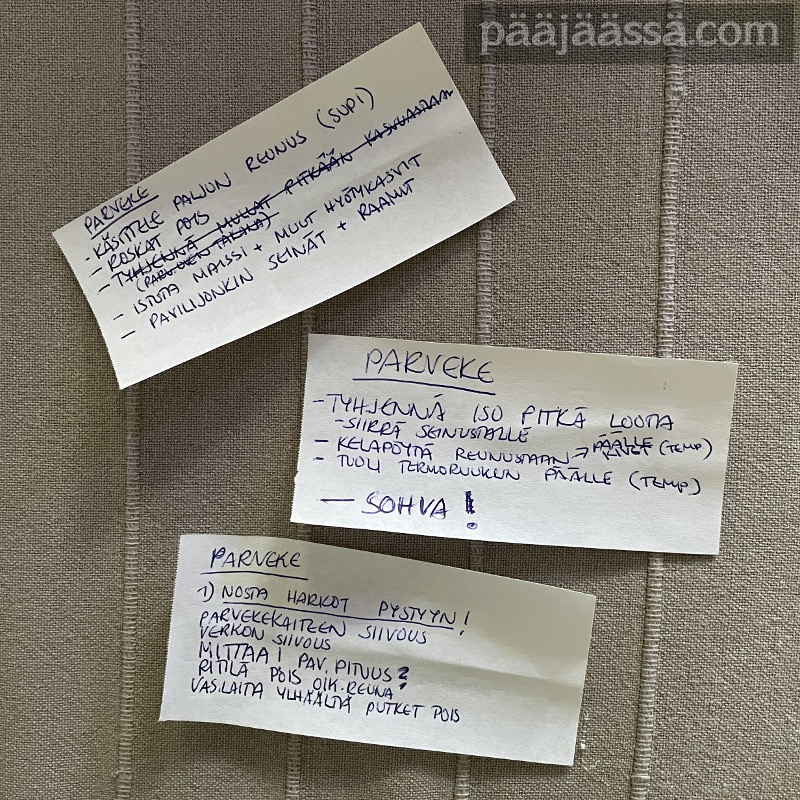 pääjäässä.com
PARVEKE
- KÄSITTELE PALJUN REUNUS (SUPI)
- ROSKAT POIS
- TYHJENNÄ MULLAT PITKÄÄN KASVUASTIAAN
(PARVEKEN TAKANA)
- ISTUTA MAISSI + MUUT HYÖTYKASVIT
- PAVILJONKIN SEINÄT + RAAMIT
PARVEKE
- TYHJENNÄ ISO PITKÄ LOOTA
- SIIRRÄ SEINUSTALLE
- KELAPÖYTÄ REUNUSTAAN → PÄÄLLE (TEMP)
- TUOLI TERMORUUKUN PÄÄLLE (TEMP)
— SOHVA!
PARVEKE
1) NOSTA HARKOT PYSTYYN!
PARVEKEKAITEEN SIIVOUS
VERKON SIIVOUS
MITTAA! PAV. PITUUS?
RITILÄ POIS OIK. REUNA!
VAS. LAITA YLHÄÄLTÄ PUTKET POIS